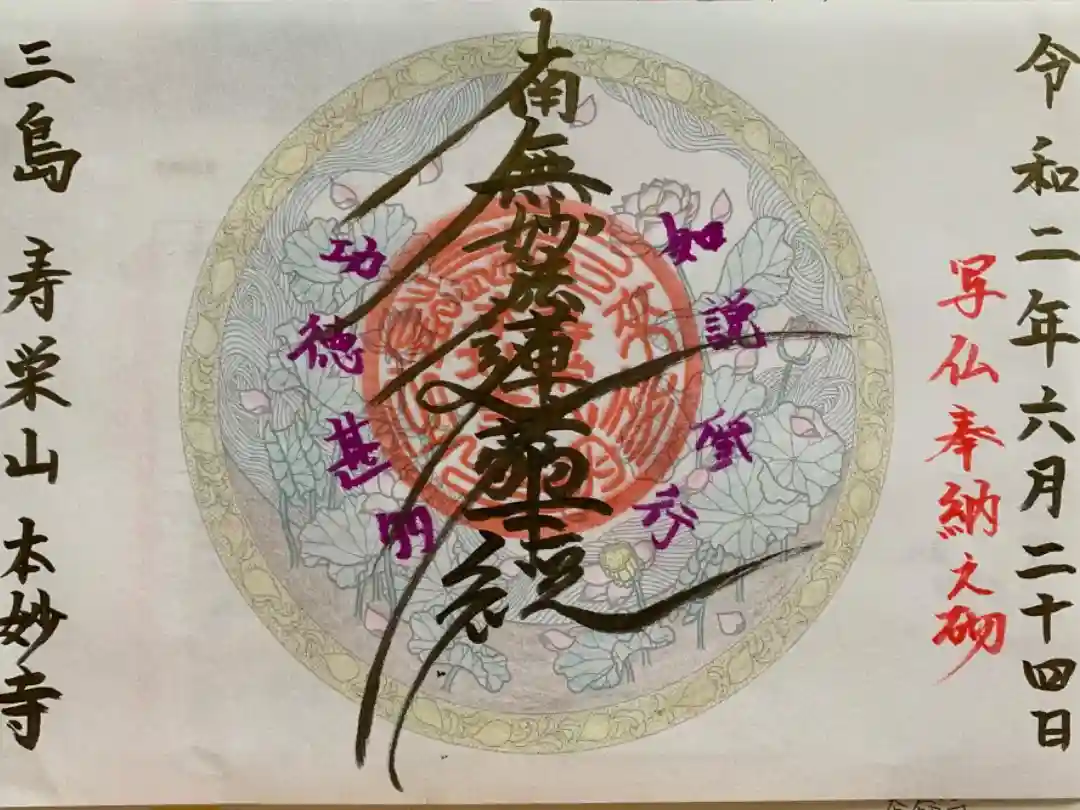 令和二年六月二十四日
写仏奉納之砌
如説修行
南無妙法蓮華経
功徳甚多
三島 寿栄山 本妙寺